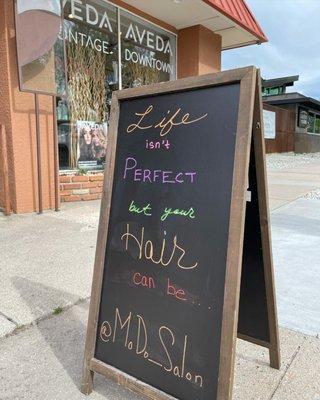 AVEDA AVEDA
VINTAGE. DOWNTOWN
Life
isn't
PERFECT
but your
Hair
can be...
@M.Do_Salon